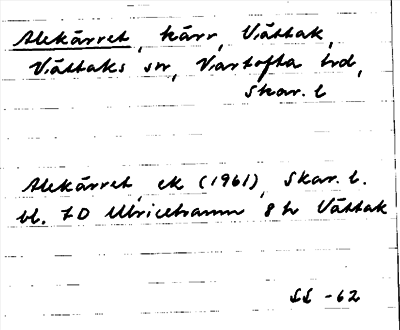 Alekärret, kärr, Vättak,
Vättaks sn, Vartofta hd,
Skar. l
Alekärret, ek (1961), Skar. l.
bl. 7D Ulricehamn 8h Vättak
SS -62